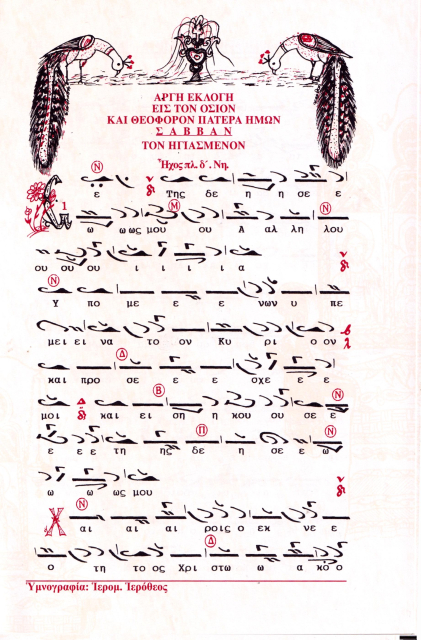 ΑΡΓΗ ΕΚΛΟΓΗ
ΕΙΣ ΤΟΝ ΟΣΙΟΝ
ΚΑΙ ΘΕΟΦΟΡΟΝ ΠΑΤΕΡΑ ΗΜΩΝ
Σ Α Β Β Α Ν
ΤΟΝ ΗΓΙΑΣΜΕΝΟΝ
Ἦχος πλ. δ΄. Νη.
Ν
ε Της δε η η σε ε
Μ Ν
ω ω ως μου ου Α αλ λη λου
ου ου ου ι ι ι ι α
Ν
Υ πο με ε ε νων υ πε
μει ει να το ον Κυ ρι ο ον
Δ
και προ σε ε ε σχε ε ε
Β Ν
μοι και ει ση η κου ου σε ε
Π Ν
ε ε ε τη ης δε η σε ε ω
ω ω ως μου
Ν
Χ αι αι αι ροις ο εκ νε ε
Δ
ο τη το ος Χρι στω ω α κο ο
Ὑμνογραφία: Ἱερομ. Ἱερόθεος